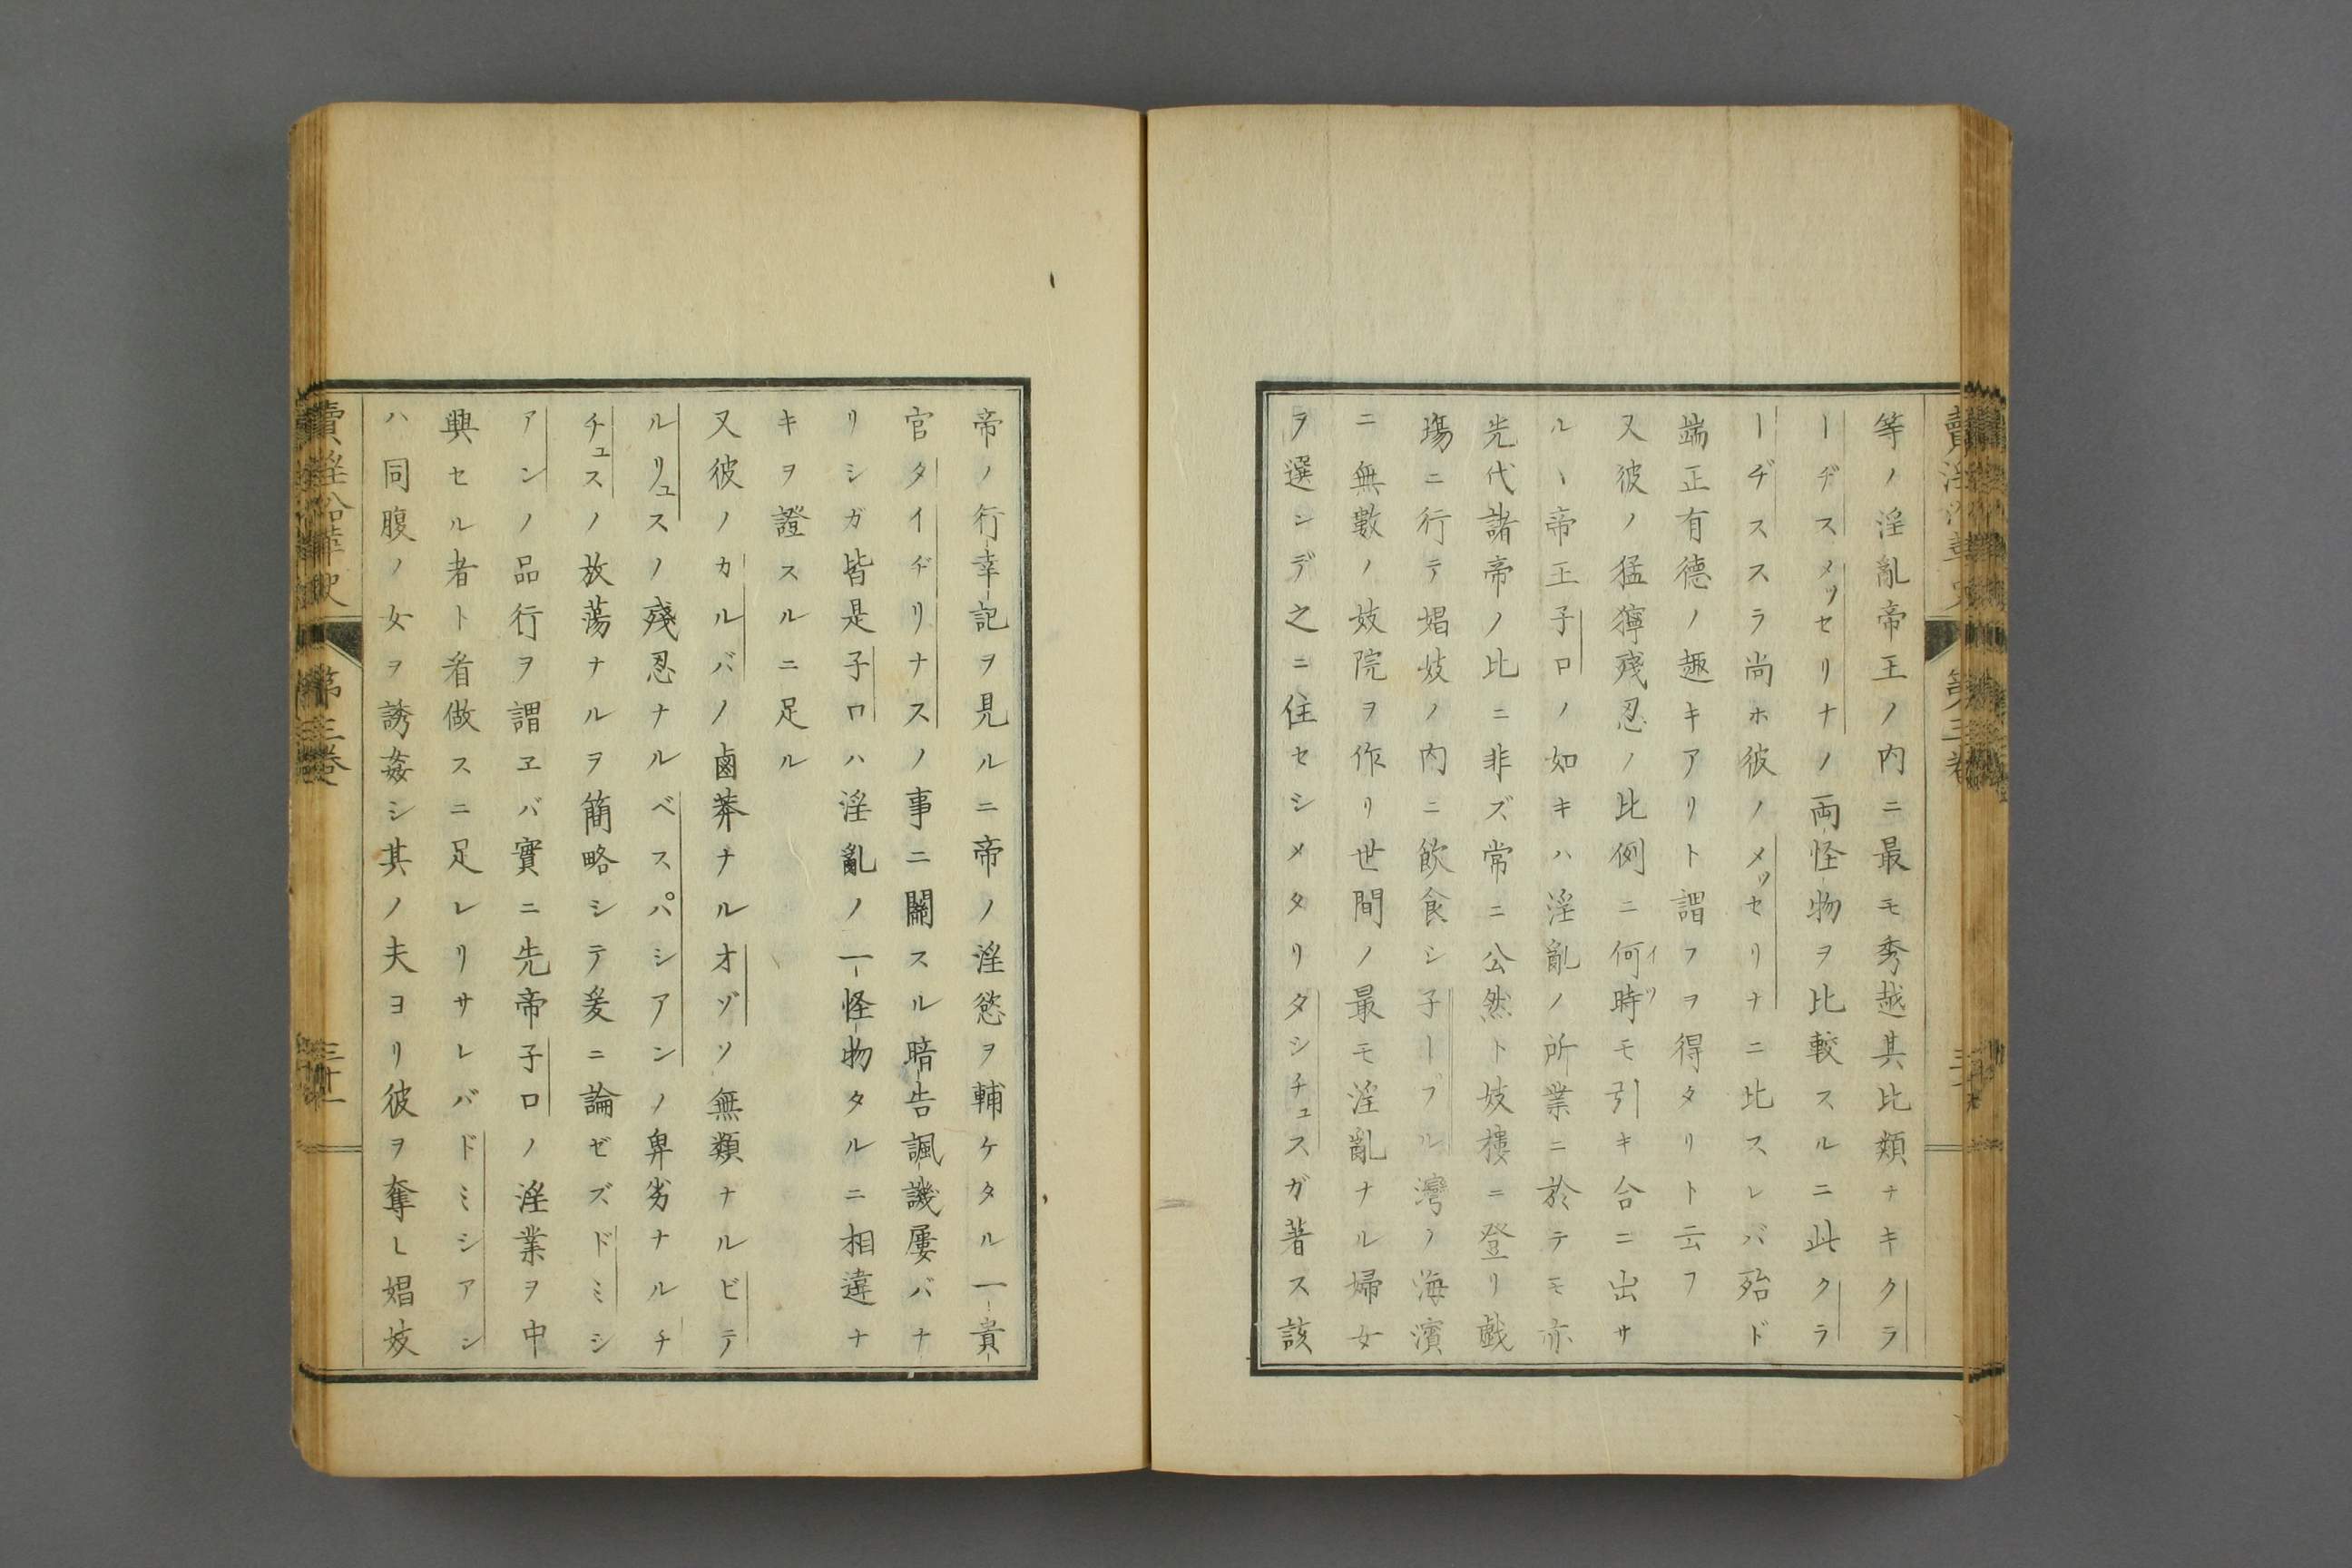 等ノ淫亂帝王ノ内ニ最モ秀越其比類ナキクラ
ーヂスメッセリナノ両怪物ヲ比較スルニ此クラ
ーヂススラ尚ホ彼ノメッセリナニ比スレバ殆ド
端正有德ノ趣キアリト謂フヲ得タリト云フ
又彼ノ猛獰殘忍ノ比例ニ何時モ引キ合ニ出サ
イツ
ルヽ帝王子ロノ如キハ淫亂ノ所業ニ於テモ亦
先代諸帝ノ比ニ非ズ常ニ公然ト妓樓ニ登リ戯
塲ニ行テ娼妓ノ内ニ飲食シ子ープル灣ノ海濱
ニ無數ノ妓院ヲ作リ世間ノ最モ淫亂ナル婦女
ヲ選ンデ之ニ住セシメタリタシチュスガ著ス該
賣淫沿革史
第三卷
帝ノ行幸記ヲ見ルニ帝ノ淫慾ヲ輔ケタル一貴
官タイヂリナスノ事ニ關スル暗告諷譏屢バナ
リシガ皆是子ロハ淫亂ノ一怪物タルニ相違ナ
キヲ證スルニ足ル
又彼ノカルバノ鹵莽ナルオゾソ無類ナルビテ
ルリュスノ殘忍ナルベスパシアンノ卑劣ナルチ
チュスノ放蕩ナルヲ簡略シテ爰ニ論ゼズドミシ
アンノ品行ヲ謂ヱバ實ニ先帝子ロノ淫業ヲ中
興セル者ト看做スニ足レリサレバドミシアン
ハ同腹ノ女ヲ誘姦シ其ノ夫ヨリ彼ヲ奪レ娼妓
賣淫沿革史
第三卷
三十一